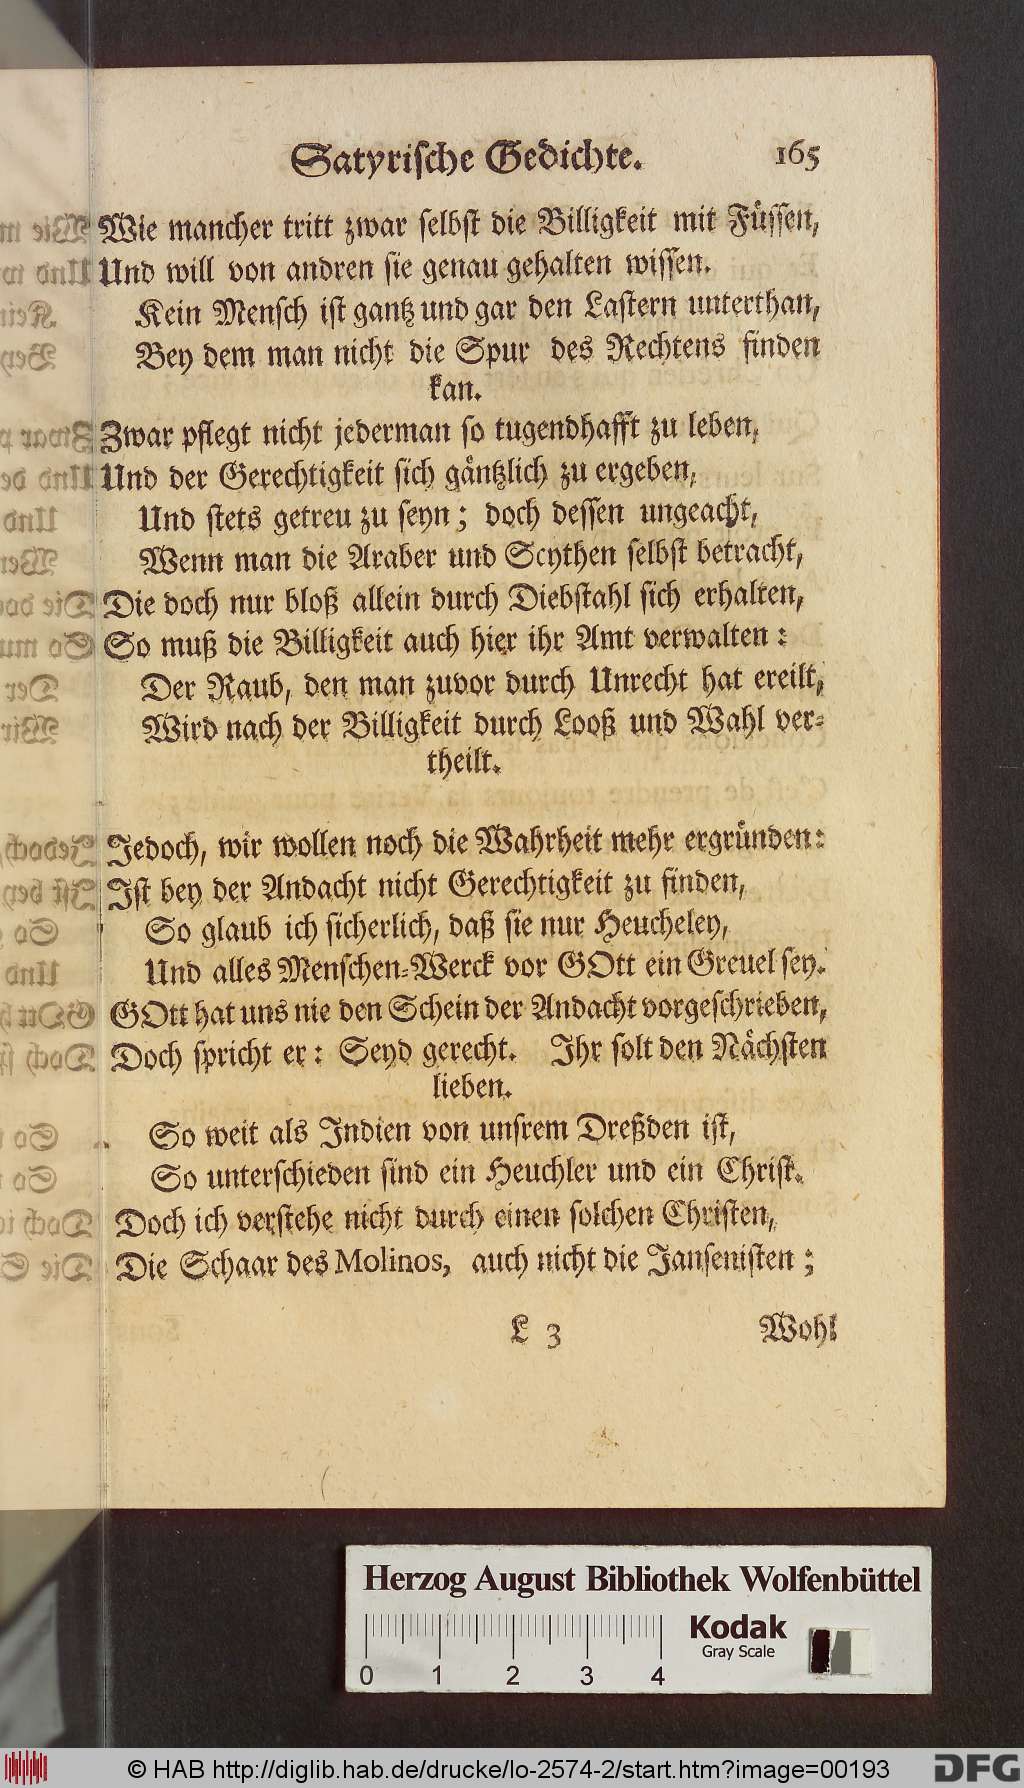 Satyrische Gedichte. 165
Wie mancher tritt zwar selbst die Billigkeit mit Füssen,
Und will von andren sie genau gehalten wissen.
Kein Mensch ist gantz und gar den Lastern unterthan,
Bey dem man nicht die Spur des Rechtens finden
kan.
Zwar pflegt nicht jederman so tugendhafft zu leben,
Und der Gerechtigkeit sich gäntzlich zu ergeben,
Und stets getreu zu seyn; doch dessen ungeacht,
Wenn man die Araber und Scythen selbst betracht,
Die doch nur bloß allein durch Diebstahl sich erhalten,
So muß die Billigkeit auch hier ihr Amt verwalten:
Der Raub, den man zuvor durch Unrecht hat ereilt,
Wird nach der Billigkeit durch Looß und Wahl ver-
theilt.
Jedoch, wir wollen noch die Wahrheit mehr ergründen:
Ist bey der Andacht nicht Gerechtigkeit zu finden,
So glaub ich sicherlich, daß sie nur Heucheley,
Und alles Menschen-Werck vor GOtt ein Greuel sey.
GOtt hat uns nie den Schein der Andacht vorgeschrieben,
Doch spricht er: Seyd gerecht. Ihr solt den Nächsten
lieben.
So weit als Indien von unsrem Dreßden ist,
So unterschieden sind ein Heuchler und ein Christ.
Doch ich verstehe nicht durch einen solchen Christen,
Die Schaar des Molinos, auch nicht die Jansenisten;
L 3 Wohl
Herzog August Bibliothek Wolfenbüttel
Kodak
Gray Scale
0 1 2 3 4
© HAB http://diglib.hab.de/drucke/lo-2574-2/start.htm?image=00193
DFG